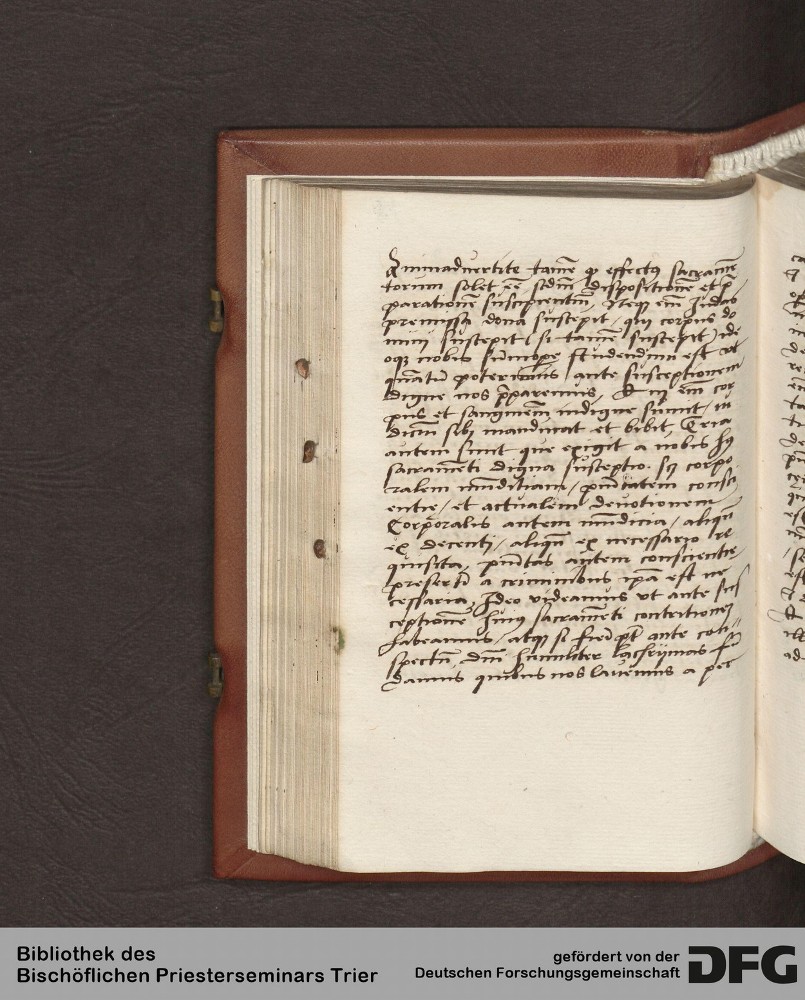 Animaduertite tamē ꝙ effectꝰ sacramē
torum solet eē scdm̄ dispositionē et p̄
parationē suscipientiū, Neqꝫ em̄ Iudas
premissa dona suscepit, qui corpus do
mini suscepit (si tamē suscepit) ide
oqꝫ nobis summopꝫe studendum est vt
quātū poterimus ante susceptionem
digne nos p̄paremus, em̄ cor
pus et sanguinem indigne sumit, iu
dicm̄ sibi manducat et bibit Tria
autem sunt que exigit a nobis hꝰ
sacramēti digna susceptio. Scꝫ corpo
ralem mūditiam, puritatem consci
entie, et actualem deuotionem
Corporalis autem mūdicia, aliqn̄
ex decenti, aliqn̄ ex necessario re
quisita, puritas autem conscientie
presertī a criminibus ipā est ne
cessaria, Ideo videamus vt ante sus
ceptionē huiꝰ sacramēti contritionē
habeamus, atqꝫ si fieri pōt ante con
spectū dn̄i humiliter lachrymas fū
damus quibus nos lauemus a pec
Bibliothek des
Bischöflichen Priesterseminars Trier
gefördert von der
Deutschen Forschungsgemeinschaft
DFG